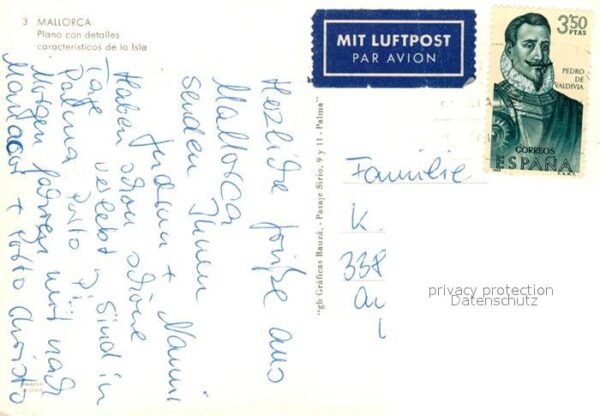 3 MALLORCA
Plano con detalles
característicos de la Isla
MIT LUFTPOST
PAR AVION
3'50
PTAS
PEDRO
DE
VALDIVIA
CORREOS
ESPAÑA
"gb Gráficas Bauzá, - Pasaje Sirio, 9 y 11 - Palma"
Herzliche Grüße aus
Mallorca
senden Ihnen
+ Nanni
Haben schon schöne
Tage verlebt. Sind in
Palma
Morgen fahren wir nach
Manacor + Porto Christo
Familie
K.
338
privacy protection
Datenschutz